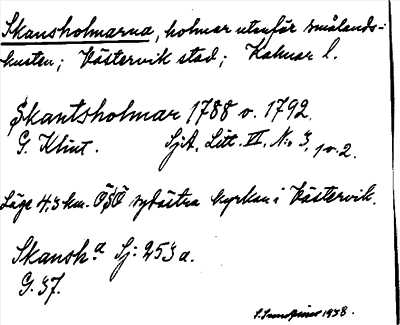 Skansholmarna, holmar utanför smålands-
kusten; Västervik stad; Kalmar l.
Skantsholmar 1788 o. 1792.
G. Klint. SjA, Litt. II, No 3, 1 o. 2.
Läge 4,3 km. ÖSÖ sydöstra kyrkan i Västervik.
Skansh.a Sj: 253 a.
G. 37.
1938.